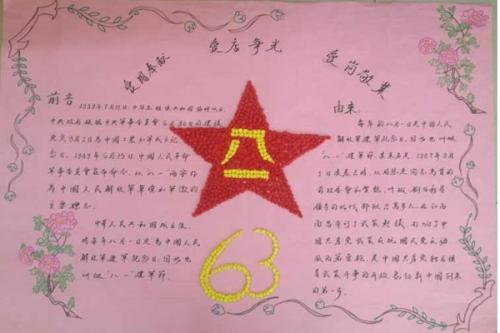 爱国奉献
爱店争光
爱岗敬业
前言 1933年7月11日,中华苏维埃共和国临时
中央政府根据中央革命军事委员会6月30日的建议
决定8月1日为中国工农红军成立纪
念日。1949年6月15日,中国人民革命
军事委员会发布命令,以"八一"两字作
为中国人民解放军军旗和军徽的
主要标志。
中华人民共和国成立后,
将每年八月一日定为中国人民
解放军建军纪念日,因此也
叫做"八一"建军节。
八一
63
由来:
每年的八月一日是中国人民
解放军建军纪念日,因此也叫
"八一"建军节。1927年8月
1日凌晨二点,以周恩来同志为首的
前敌委员会和贺龙、叶挺、朱德
领导的北伐部队三万多人,在江西
南昌举行了武装起义,打响了中
国共产党武装反抗国民党反动
派的第一枪。是中国共产党独立领
导武装斗争的开始,新中国到来
的第一步。